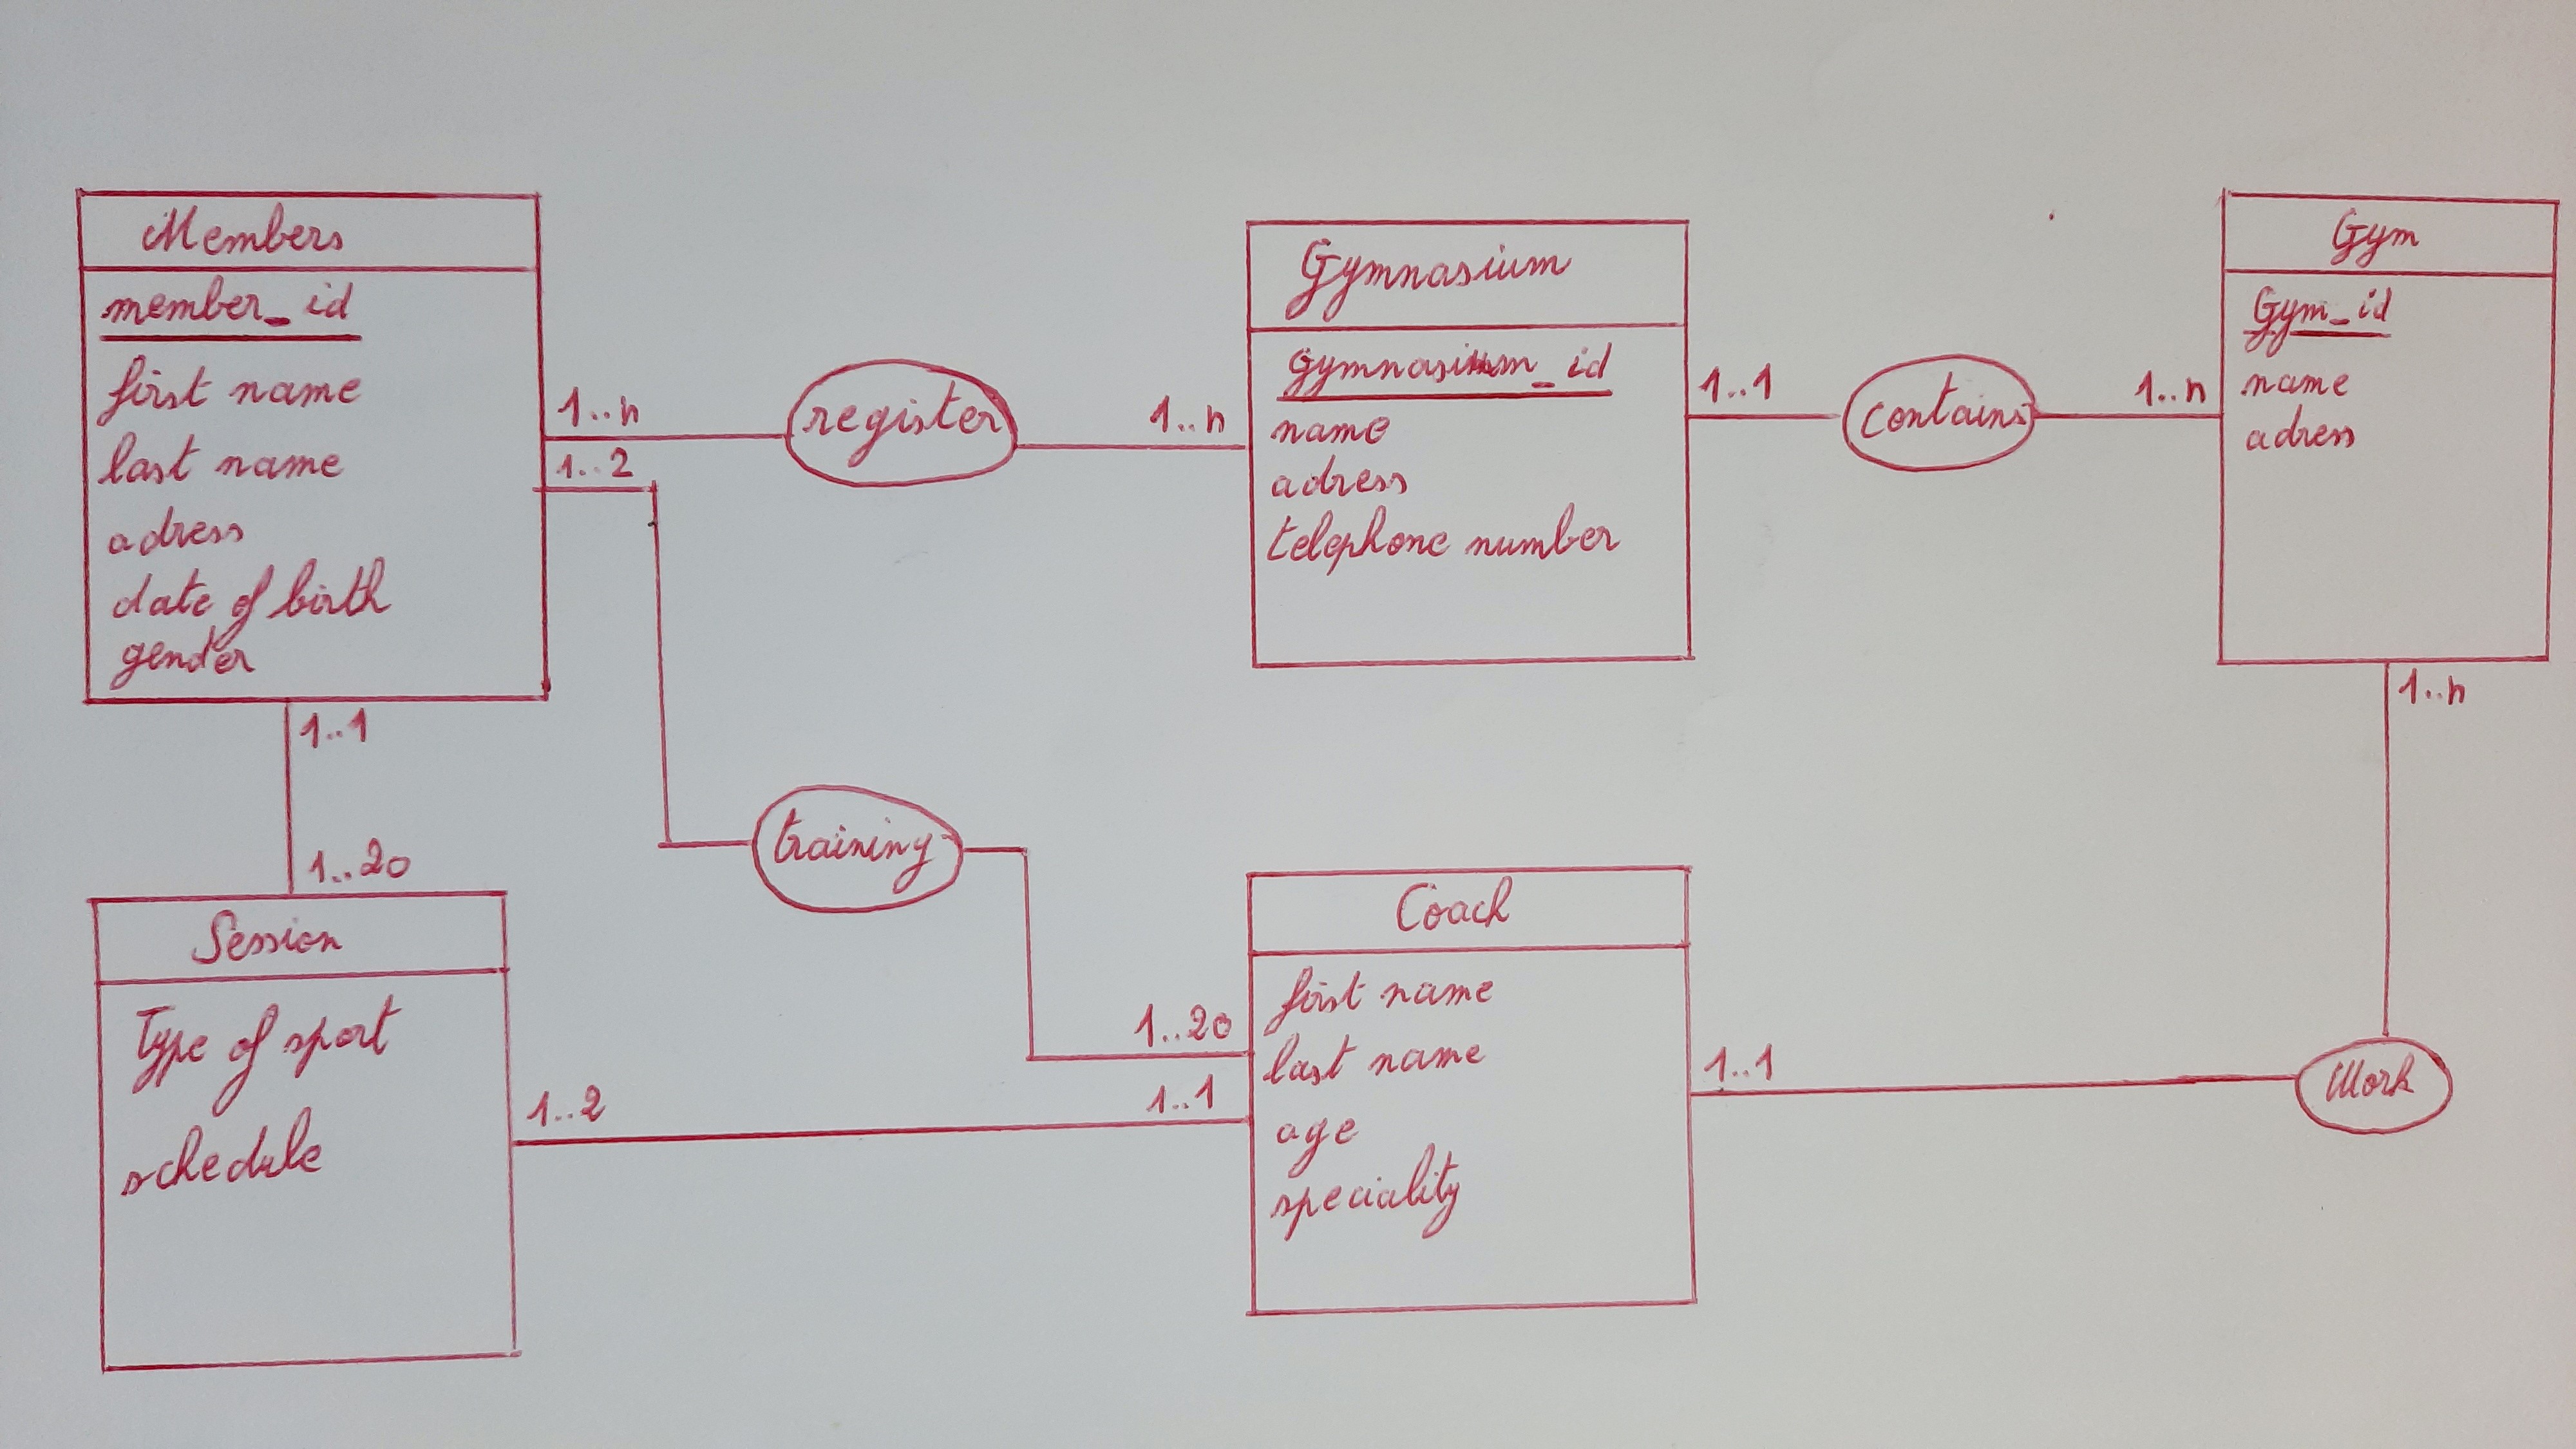 Members
member_id
first name
last name
adress
date of birth
gender
1..n
register
1..n
1..2
Gymnasium
gymnasium_id
name
adress
telephone number
1..1
contains
1..n
Gym
Gym_id
name
adress
1..n
1..1
1..20
training
Session
Type of sport
schedule
1..2
1..20
1..1
Coach
first name
last name
age
speciality
1..1
Work